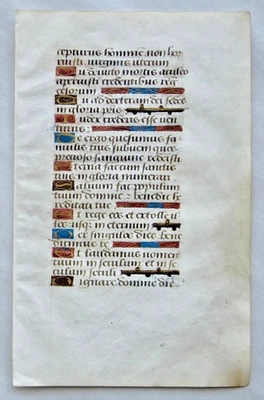 cepturus hominē non hor
ruisti uirginis uterum
Tu deuicto mortis aculeo
aperuisti credentibus reg
celorum
Tu ad dexteram dei sedes
in gloria pris
Iudex crederis esse uen
turus:
Te ergo quesumus fa
mulis tuis subueni quos
precioso sanguine redemisti
Eterna fac cum sanctis
tuis in gloria numerari
Saluum fac populum
tuum domine: benedic he
reditati tue
Et rege eos et extolle il
los usqʒ in eternum
Per singulos dies bene
dicimus te
Et laudamus nomen
tuum in seculum et in se
culum seculi
Dignare domine die